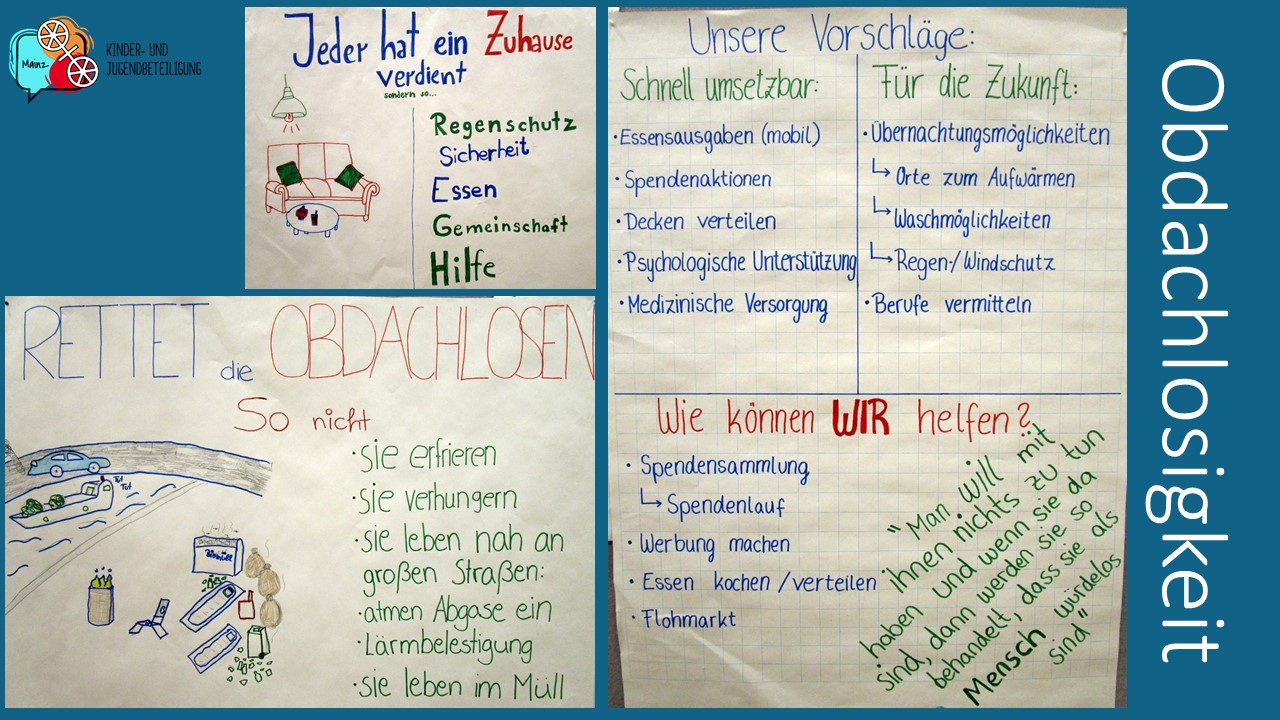 Mainz
KINDER- UND
JUGENDBETEILIGUNG
Jeder hat ein Zuhause
verdient
sondern so...
Regenschutz
Sicherheit
Essen
Gemeinschaft
Hilfe
RETTET die OBDACHLOSEN
So nicht
• sie erfrieren
• sie verhungern
• sie leben nah an
großen Straßen:
• atmen Abgase ein
• Lärmbelestigung
• sie leben im Müll
Tut
Tut
Biomüll
Unsere Vorschläge:
Schnell umsetzbar:
• Essensausgaben (mobil)
• Spendenaktionen
• Decken verteilen
• Psychologische Unterstützung
• Medizinische Versorgung
Für die Zukunft:
• Übernachtungsmöglichkeiten
↳ Orte zum Aufwärmen
↳ Waschmöglichkeiten
↳ Regen-/Windschutz
• Berufe vermitteln
Wie können WIR helfen?
• Spendensammlung
↳ Spendenlauf
• Werbung machen
• Essen kochen / verteilen
• Flohmarkt
"Man will mit
ihnen nichts zu tun
haben und wenn sie da
sind, dann werden sie so
behandelt, dass sie als
Mensch würdelos
sind"
Obdachlosigkeit